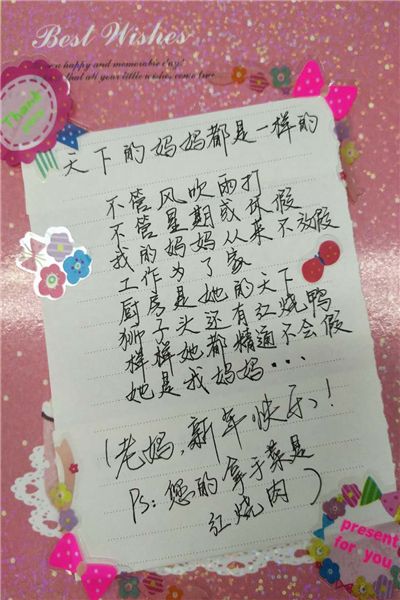 Best Wishes
a happy and memorable day!
that all your little wishes come true
Thank
天下的妈妈都是一样的
不管风吹雨打
不管星期或休假
我的妈妈从来不放假
工作为了家
厨房是她的天下
狮子头还有红烧鸭
样样她都精通不会假
她是我妈妈...
(老妈,新年快乐!
Ps:您的拿手菜是
红烧肉)
present
for you